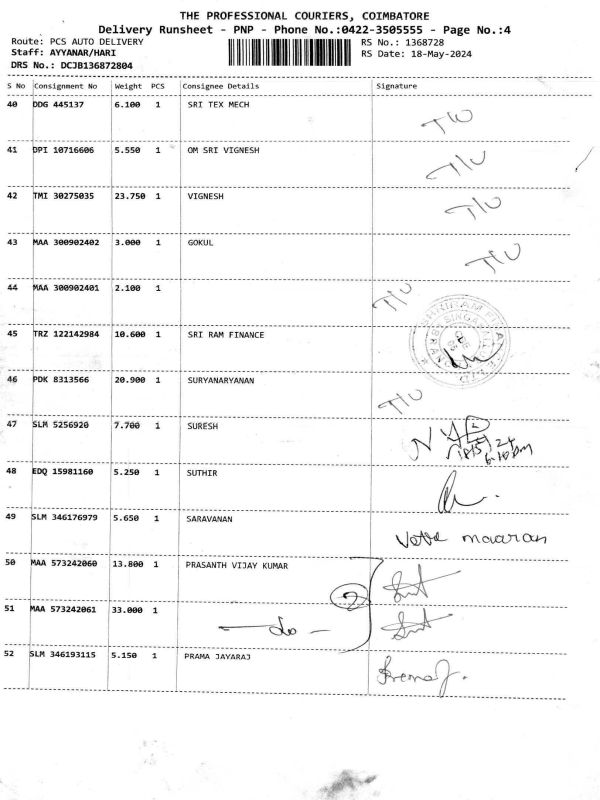 THE PROFESSIONAL COURIERS, COIMBATORE
Delivery Runsheet - PNP - Phone No.:0422-3505555 - Page No.:4
Route: PCS AUTO DELIVERY RS No.: 1368728
Staff: AYYANAR/HARI RS Date: 18-May-2024
DRS No.: DCJB136872804
S No Consignment No Weight PCS Consignee Details Signature
40 DDG 445137 6.100 1 SRI TEX MECH
T/U
41 DPI 10716606 5.550 1 OM SRI VIGNESH
T/U
42 TMI 30275035 23.750 1 VIGNESH
T/U
43 MAA 300902402 3.000 1 GOKUL
T/U
44 MAA 300902401 2.100 1
T/U
45 TRZ 122142984 10.600 1 SRI RAM FINANCE
46 PDK 8313566 20.900 1 SURYANARYANAN
T/U
47 SLM 5256920 7.700 1 SURESH
6.10pm
48 EDQ 15981160 5.250 1 SUTHIR
49 SLM 346176979 5.650 1 SARAVANAN
maaran
50 MAA 573242060 13.800 1 PRASANTH VIJAY KUMAR
2
51 MAA 573242061 33.000 1
— do —
52 SLM 346193115 5.150 1 PRAMA JAYARAJ